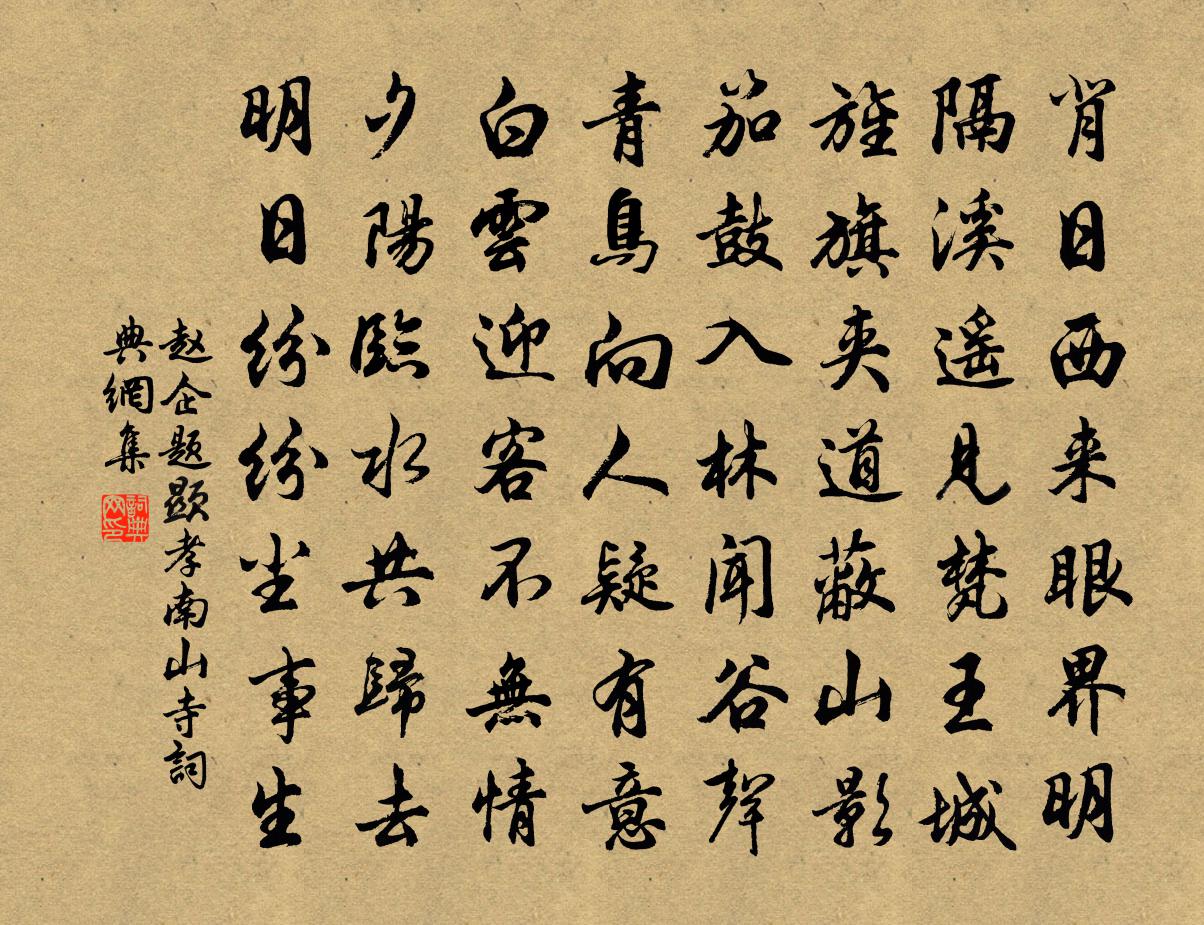 肖日西来眼界明
隔溪遥见梵王城
旌旗夹道蔽山影
笳鼓入林闻谷聲
青鳥向人疑有意
白雲迎客不無情
夕陽臨水共歸去
明日纷纷尘事生
赵企题顯孝南山寺詞
典網集
詞典
网印